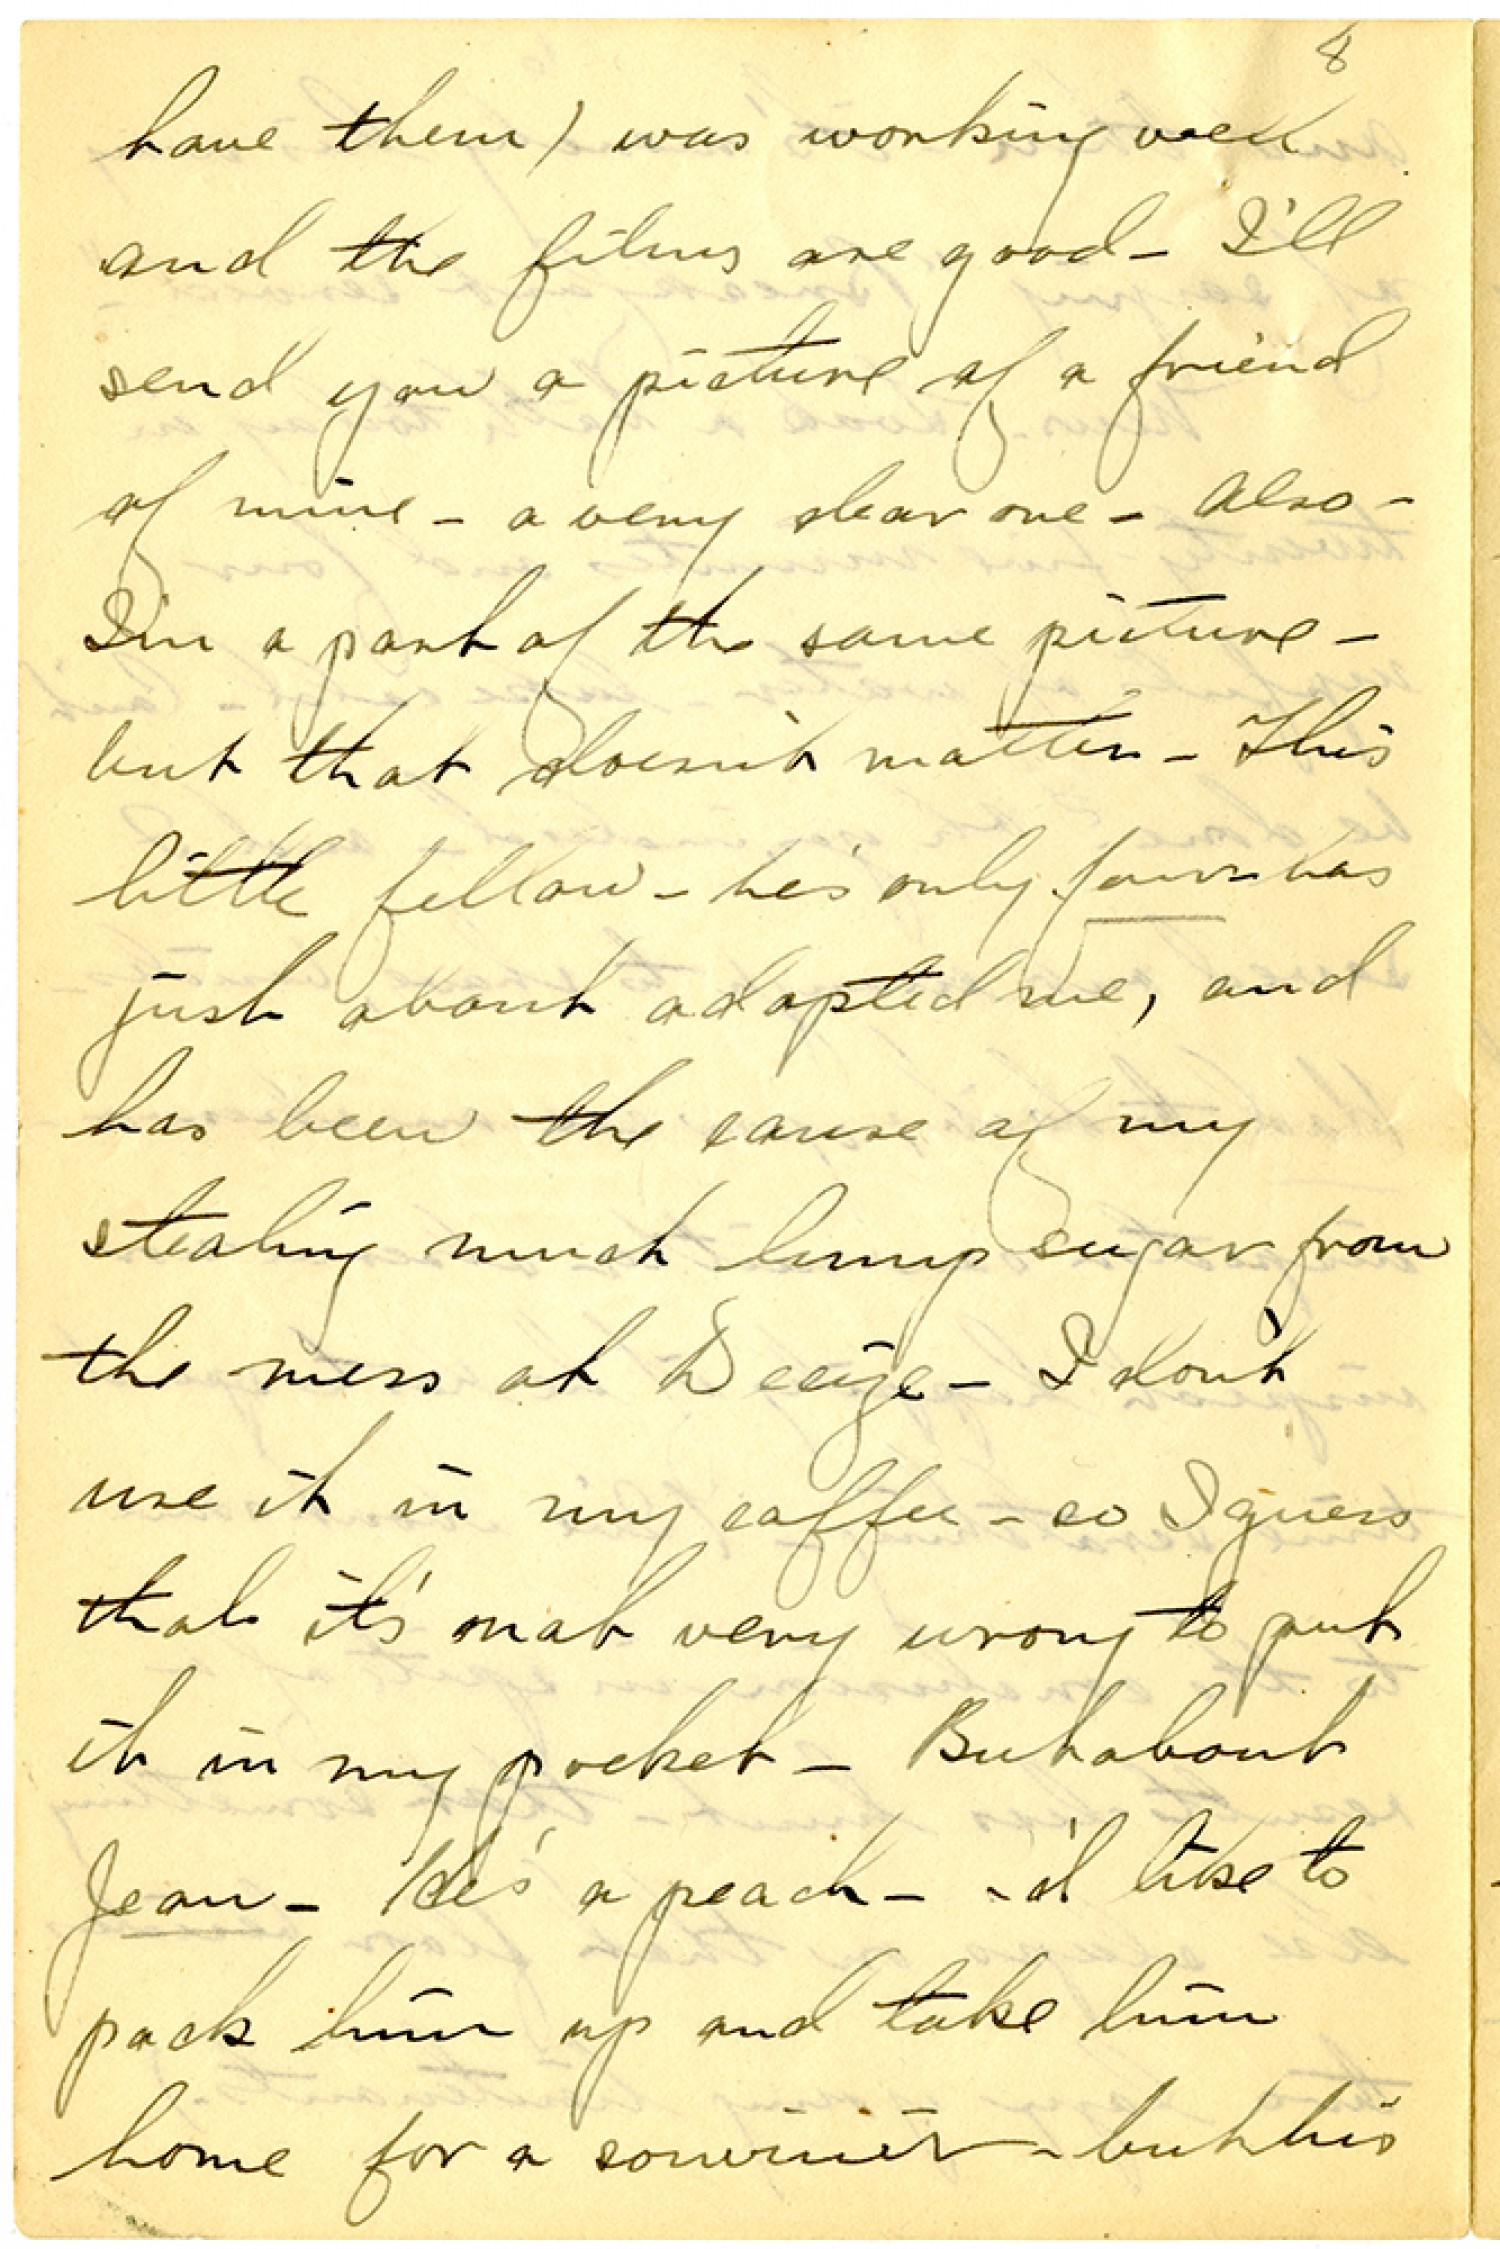 8
have them) was working well
and the films are good - I'll
send you a picture of a friend
of mine - a very dear one - Also -
I'm a part of the same picture -
but that doesn't matter - This
little fellow - he's only four - has
just about adopted me, and
has been the cause of my
stealing much lump sugar from
the mess at Decize - I don't
use it in my coffee - so I guess
that it's not very wrong to put
it in my pocket - But about
Jean - He's a peach - I'd like to
pack him up and take him
home for a souvinir - but his